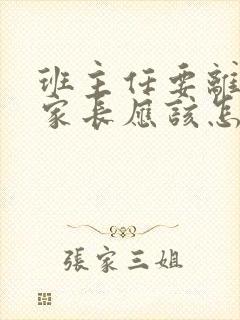 班主任要離
家長應該怎
張家三姐